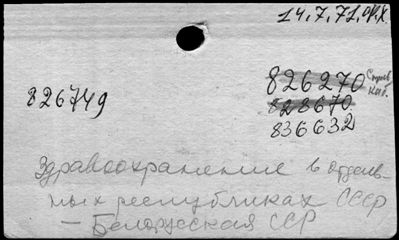 14.7.71.
826749
826270
828670
836632
Здравоохранение в отдель-
ных республиках СССР
— Белорусская ССР